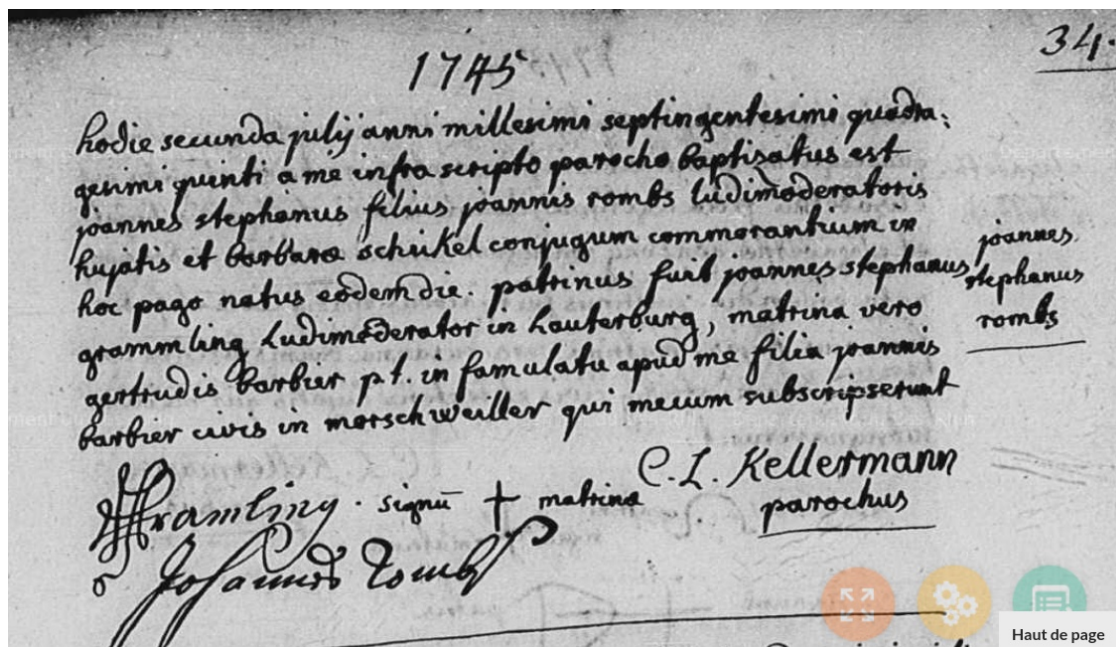 1745
34.
hodie secunda julij anni millesimi septingentesimi quadra:
gesimi quinti a me infra scripto parocho baptisatus est
joannes stephanus filius joannis rombs ludimoderatoris
hujatis et barbara schikel conjugum commorantium in
hoc pago natus eodem die. patrinus fuit joannes stephanus
grammling Ludimoderator in Lauterburg, matrina vero
gertrudis barbier p.t. in famulatu apud me filia joannis
barbier civis in morschweiller qui mecum subscripserunt
joannes
stephanus
rombs
C. L. Kellermann
parochus
Gramling . signū + matrina
Johannes Rombs
Haut de page